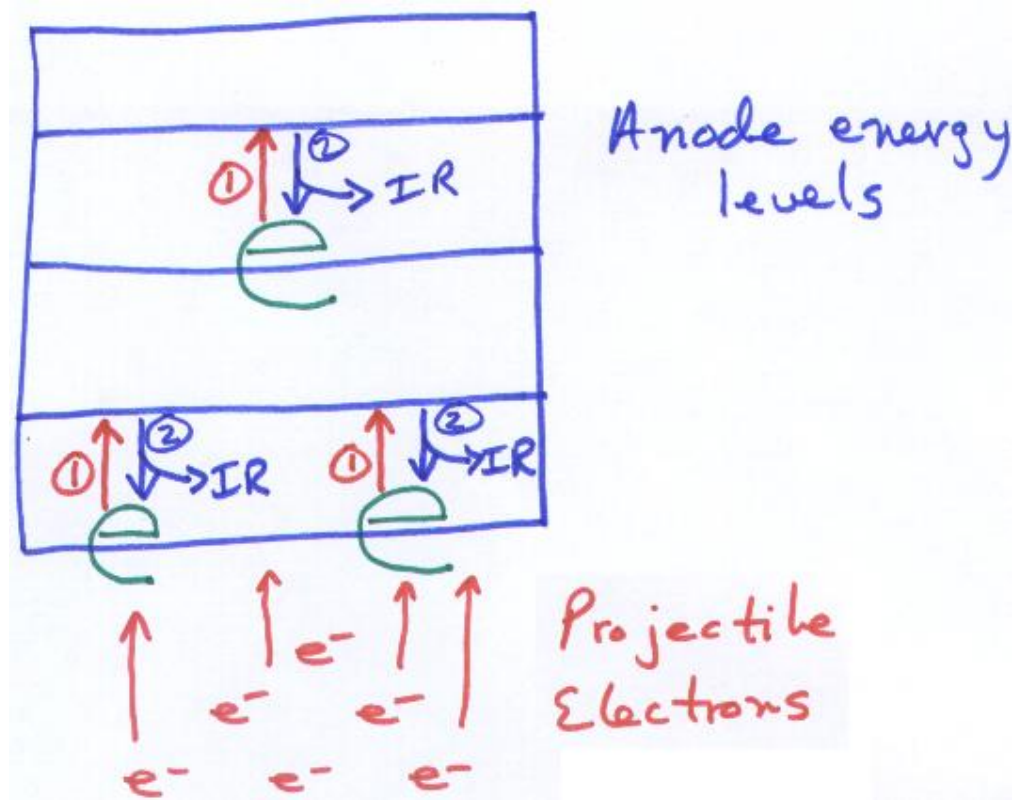 Anode energy
levels
① ② IR
e
① ② IR ① ② IR
e e
Projectile
Electrons
e⁻
e⁻ e⁻
e⁻ e⁻ e⁻